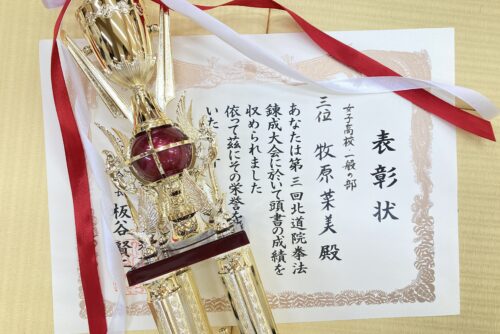 表彰状
女子高校一般の部
三位 牧原菜美 殿
あなたは第三回北道院拳法
錬成大会に於いて頭書の成績を
収められました
依って茲にその栄誉を
いた
板谷賢